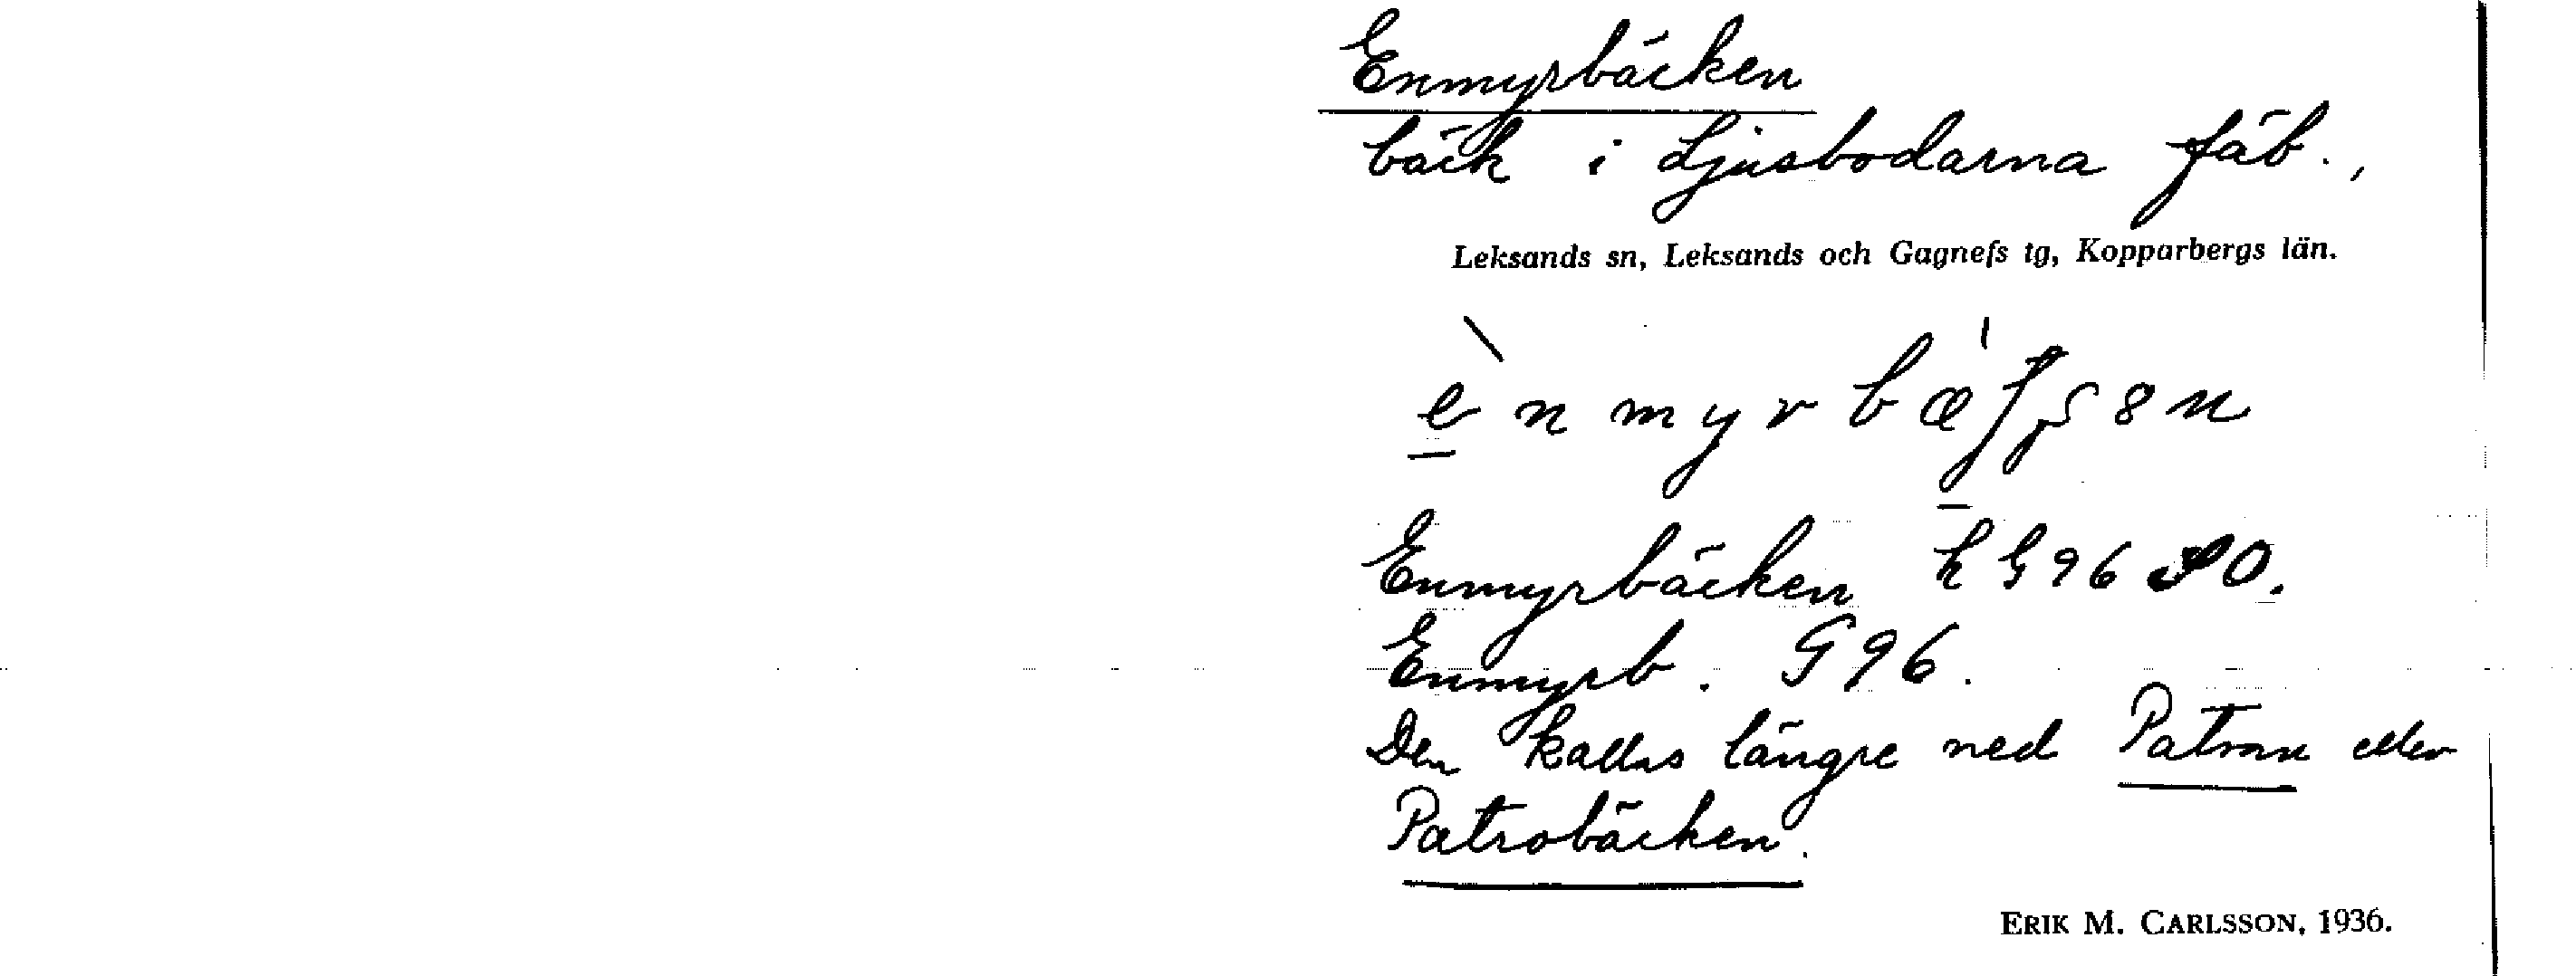 Enmyrbäcken
bäck i Ljusbodarna fäb.,
Leksands sn, Leksands och Gagnefs tg, Kopparbergs län.
Enmyrbäcken
Enmyrb. G96.
Den kallas längre ned Patron eller
Patrobäcken.
ERIK M. CARLSSON, 1936.